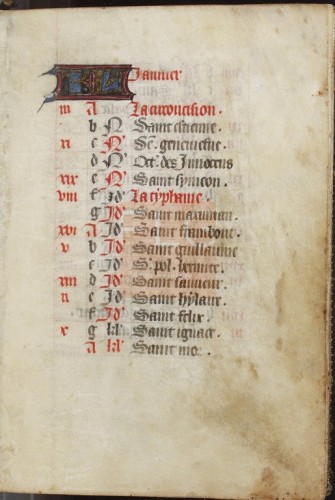 KL Januier
iii A La circoncision.
b N Saint estienne.
xi c N Se. geneuiefue.
d N Oct. des Innocens
xix e N Saint symeon.
viii f Id La typhaine.
g Id Saint maximian.
xvi A Id Saint frambout.
v b Id Saint guillaume
c Id S. pol. hermite.
xiii d Id Saint sauueur.
ii e Id Saint hylaire.
f Id Saint felix.
x g kl Saint ignace.
A kl Saint mor.